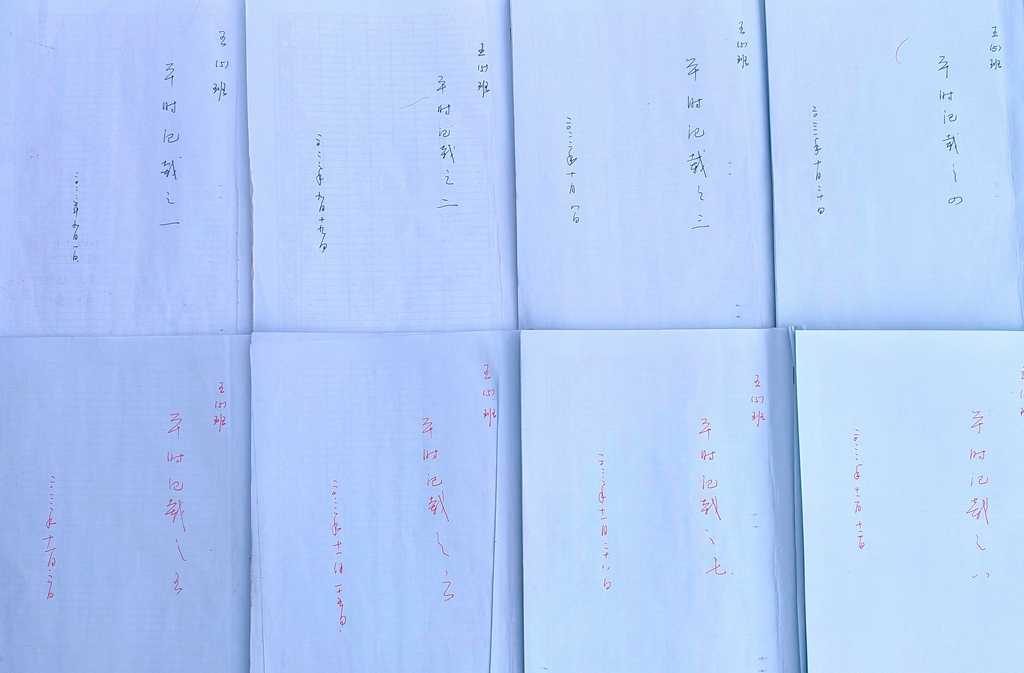 五(5)班
平时记载之一
二〇二二年九月一日
五(5)班
平时记载之二
二〇二二年九月十九日
五(5)班
平时记载之三
二〇二二年十月八日
五(5)班
平时记载之四
二〇二二年十月二十日
五(5)班
平时记载之五
二〇二二年十一月二日
五(5)班
平时记载之六
二〇二二年十一月十五日
五(5)班
平时记载之七
二〇二二年十一月二十八日
五(5)班
平时记载之八
二〇二二年十二月十二日